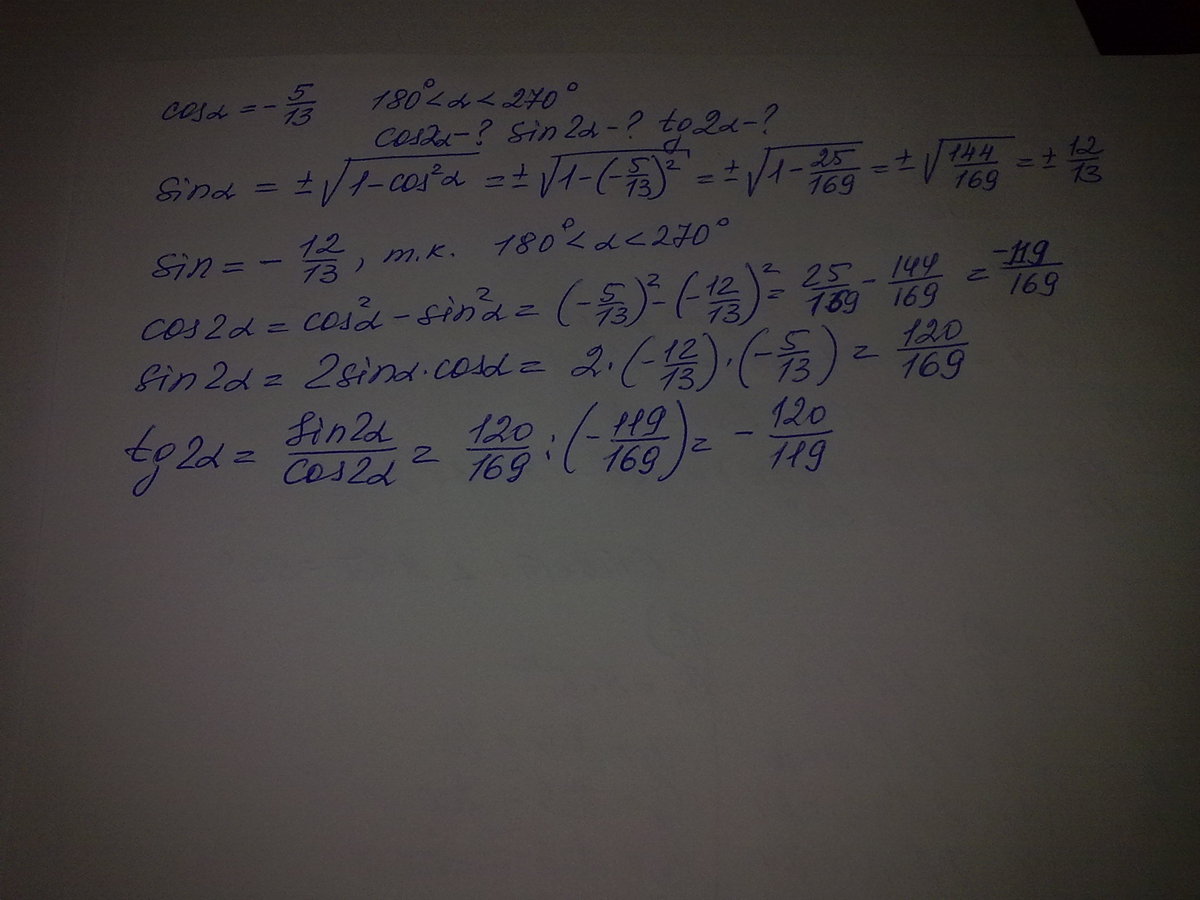 cosα = - 5/13 180° < α < 270°
cos2α - ? sin2α - ? tg2α - ?
sinα = ±√(1 - cos²α) = ±√(1 - (-5/13)²) = ±√(1 - 25/169) = ±√(144/169) = ± 12/13
sin = - 12/13, т.к. 180° < α < 270°
cos2α = cos²α - sin²α = (-5/13)² - (-12/13)² = 25/169 - 144/169 = -119/169
sin2α = 2sinα · cosα = 2 · (-12/13) · (-5/13) = 120/169
tg2α = sin2α/cos2α = 120/169 : (-119/169) = - 120/119